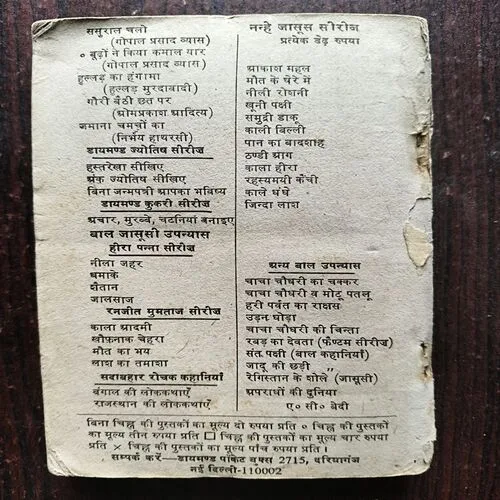 ससुराल चलो
(गोपाल प्रसाद व्यास)
० बूढ़ों ने किया कमाल यार
(गोपाल प्रसाद व्यास)
हुल्लड़ का हंगामा
(हुल्लड़ मुरदाबादी)
गौरी बैठी छत पर
(श्रोमप्रकाश श्रादित्य)
जमाना चमचों का
(निर्भय हाथरसी)
डायमण्ड ज्योतिष सीरीज
हस्तरेखा सीखिए
श्रंक ज्योतिष सीखिए
बिना जन्मपत्री श्रापका भविष्य
डायमण्ड कुकरी सीरीज
श्रचार, मुरब्बे, चटनियां बनाइए
बाल जासूसी उपन्यास
हीरा पन्ना सीरीज
नीला जहर
धमाके
शैतान
जालसाज
रनजीत मुमताज सीरीज
काला श्रादमी
खौफ़नाक चेहरा
मौत का भय
लाश का तमाशा
सदाबहार रोचक कहानियां
बंगाल की लोककथाएँ
राजस्थान की लोककथाएँ
नन्हे जासूस सीरीज
प्रत्येक डेढ़ रुपया
श्राकाश महल
मौत के घेरे में
नीली रोशनी
खूनी पक्षी
समुद्री डाकू
काली बिल्ली
पान का बादशाह
ठण्डी श्राग
काला हीरा
रहस्यमयी कैंची
काले धंधे
जिन्दा लाश
श्रन्य बाल उपन्यास
चाचा चौधरी का चक्कर
चाचा चौधरी व मोटू पतलू
हरी पर्वत का राक्षस
उड़न घोड़ा
चाचा चौधरी की चिन्ता
रबड़ का देवता (फैण्टम सीरीज)
संत पक्षी (बाल कहानियाँ)
जादू की छड़ी ,,
रेगिस्तान के शोले (जासूसी)
श्रपराधों की दुनिया
ए० सी० बेदी
बिना चिह्न की पुस्तकों का मूल्य दो रुपया प्रति ० चिह्न की पुस्तकों
का मूल्य तीन रुपया प्रति □ चिह्न की पुस्तकों का मूल्य चार रुपया
प्रति × चिह्न की पुस्तकों का मूल्य पाँच रुपया प्रति ।
सम्पर्क करें—डायमण्ड पाकेट बुक्स 2715, दरियागंज
नई दिल्ली-110002